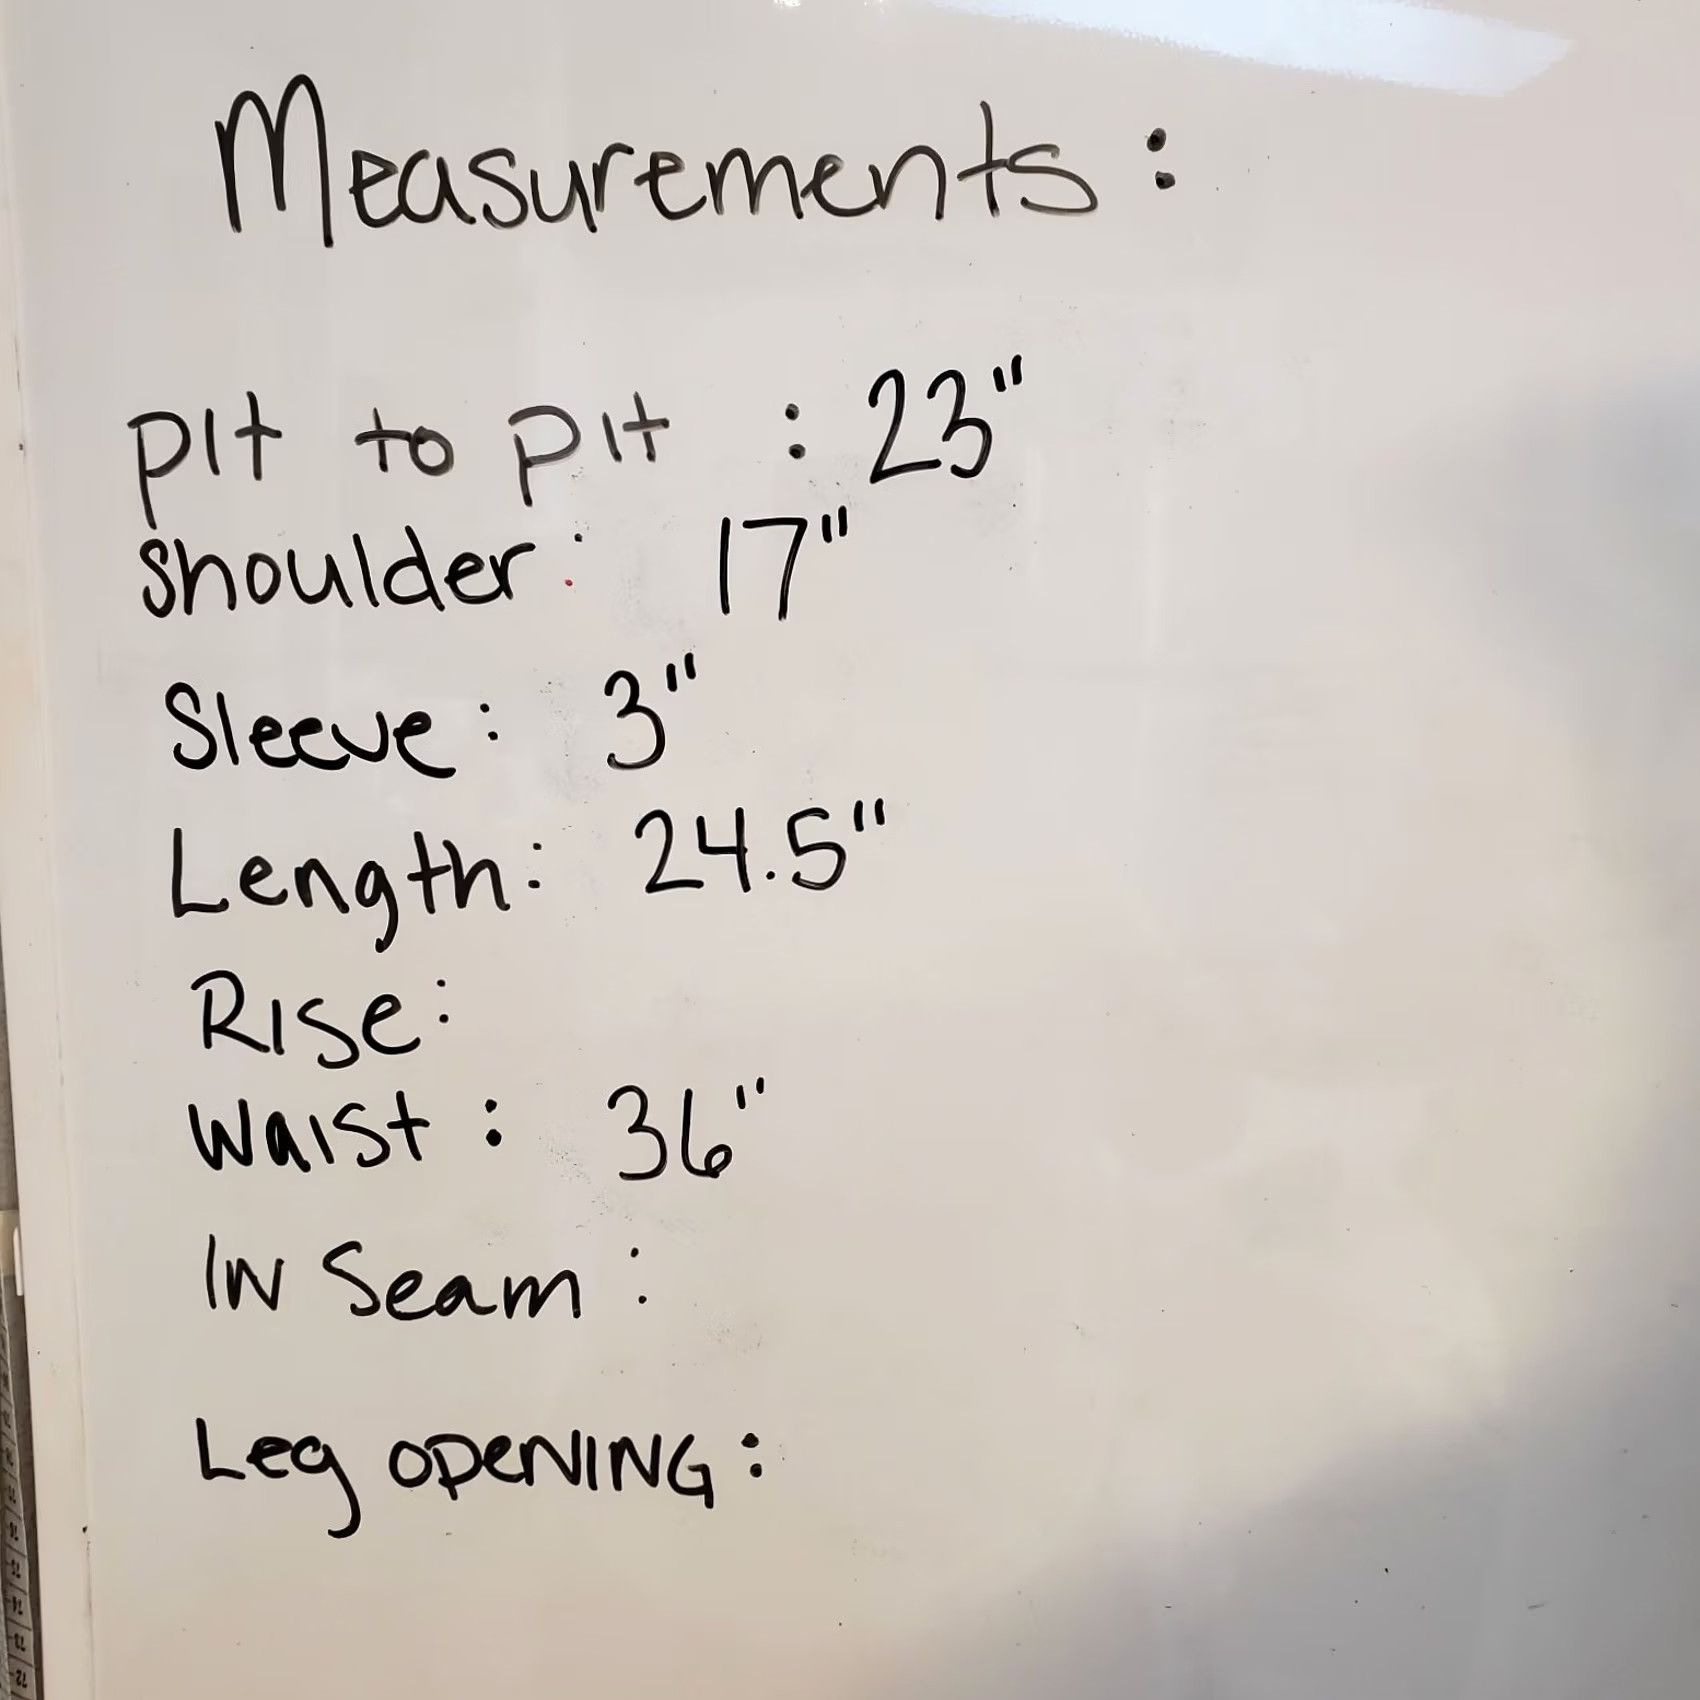 Measurements:
pit to pit : 23"
shoulder: 17"
Sleeve: 3"
Length: 24.5"
Rise:
Waist: 36"
IN Seam:
Leg OPENING: